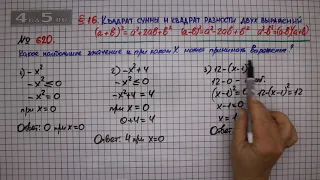 § 16. Квадрат суммы и квадрат разности двух выражений
(a+b)²=a²+2ab+b² (a-b)²=a²-2ab+b² a²-b²=(a-b)(a+b)
№ 620.
Какое наибольшее значение и при каком X может принимать выражение?
1) -x²
-x² ≤ 0
-x² = 0
x = 0
Ответ: 0 при x=0
2) -x²+4
-x² ≤ 0
-x²+4 = 4
x = 0
0+4 = 4
Ответ: 4 при x=0
3) 12-(x-1)²
12-0
(x-1)² = 0 12-(x-1)² = 12
x-1=0
x=1
Ответ: